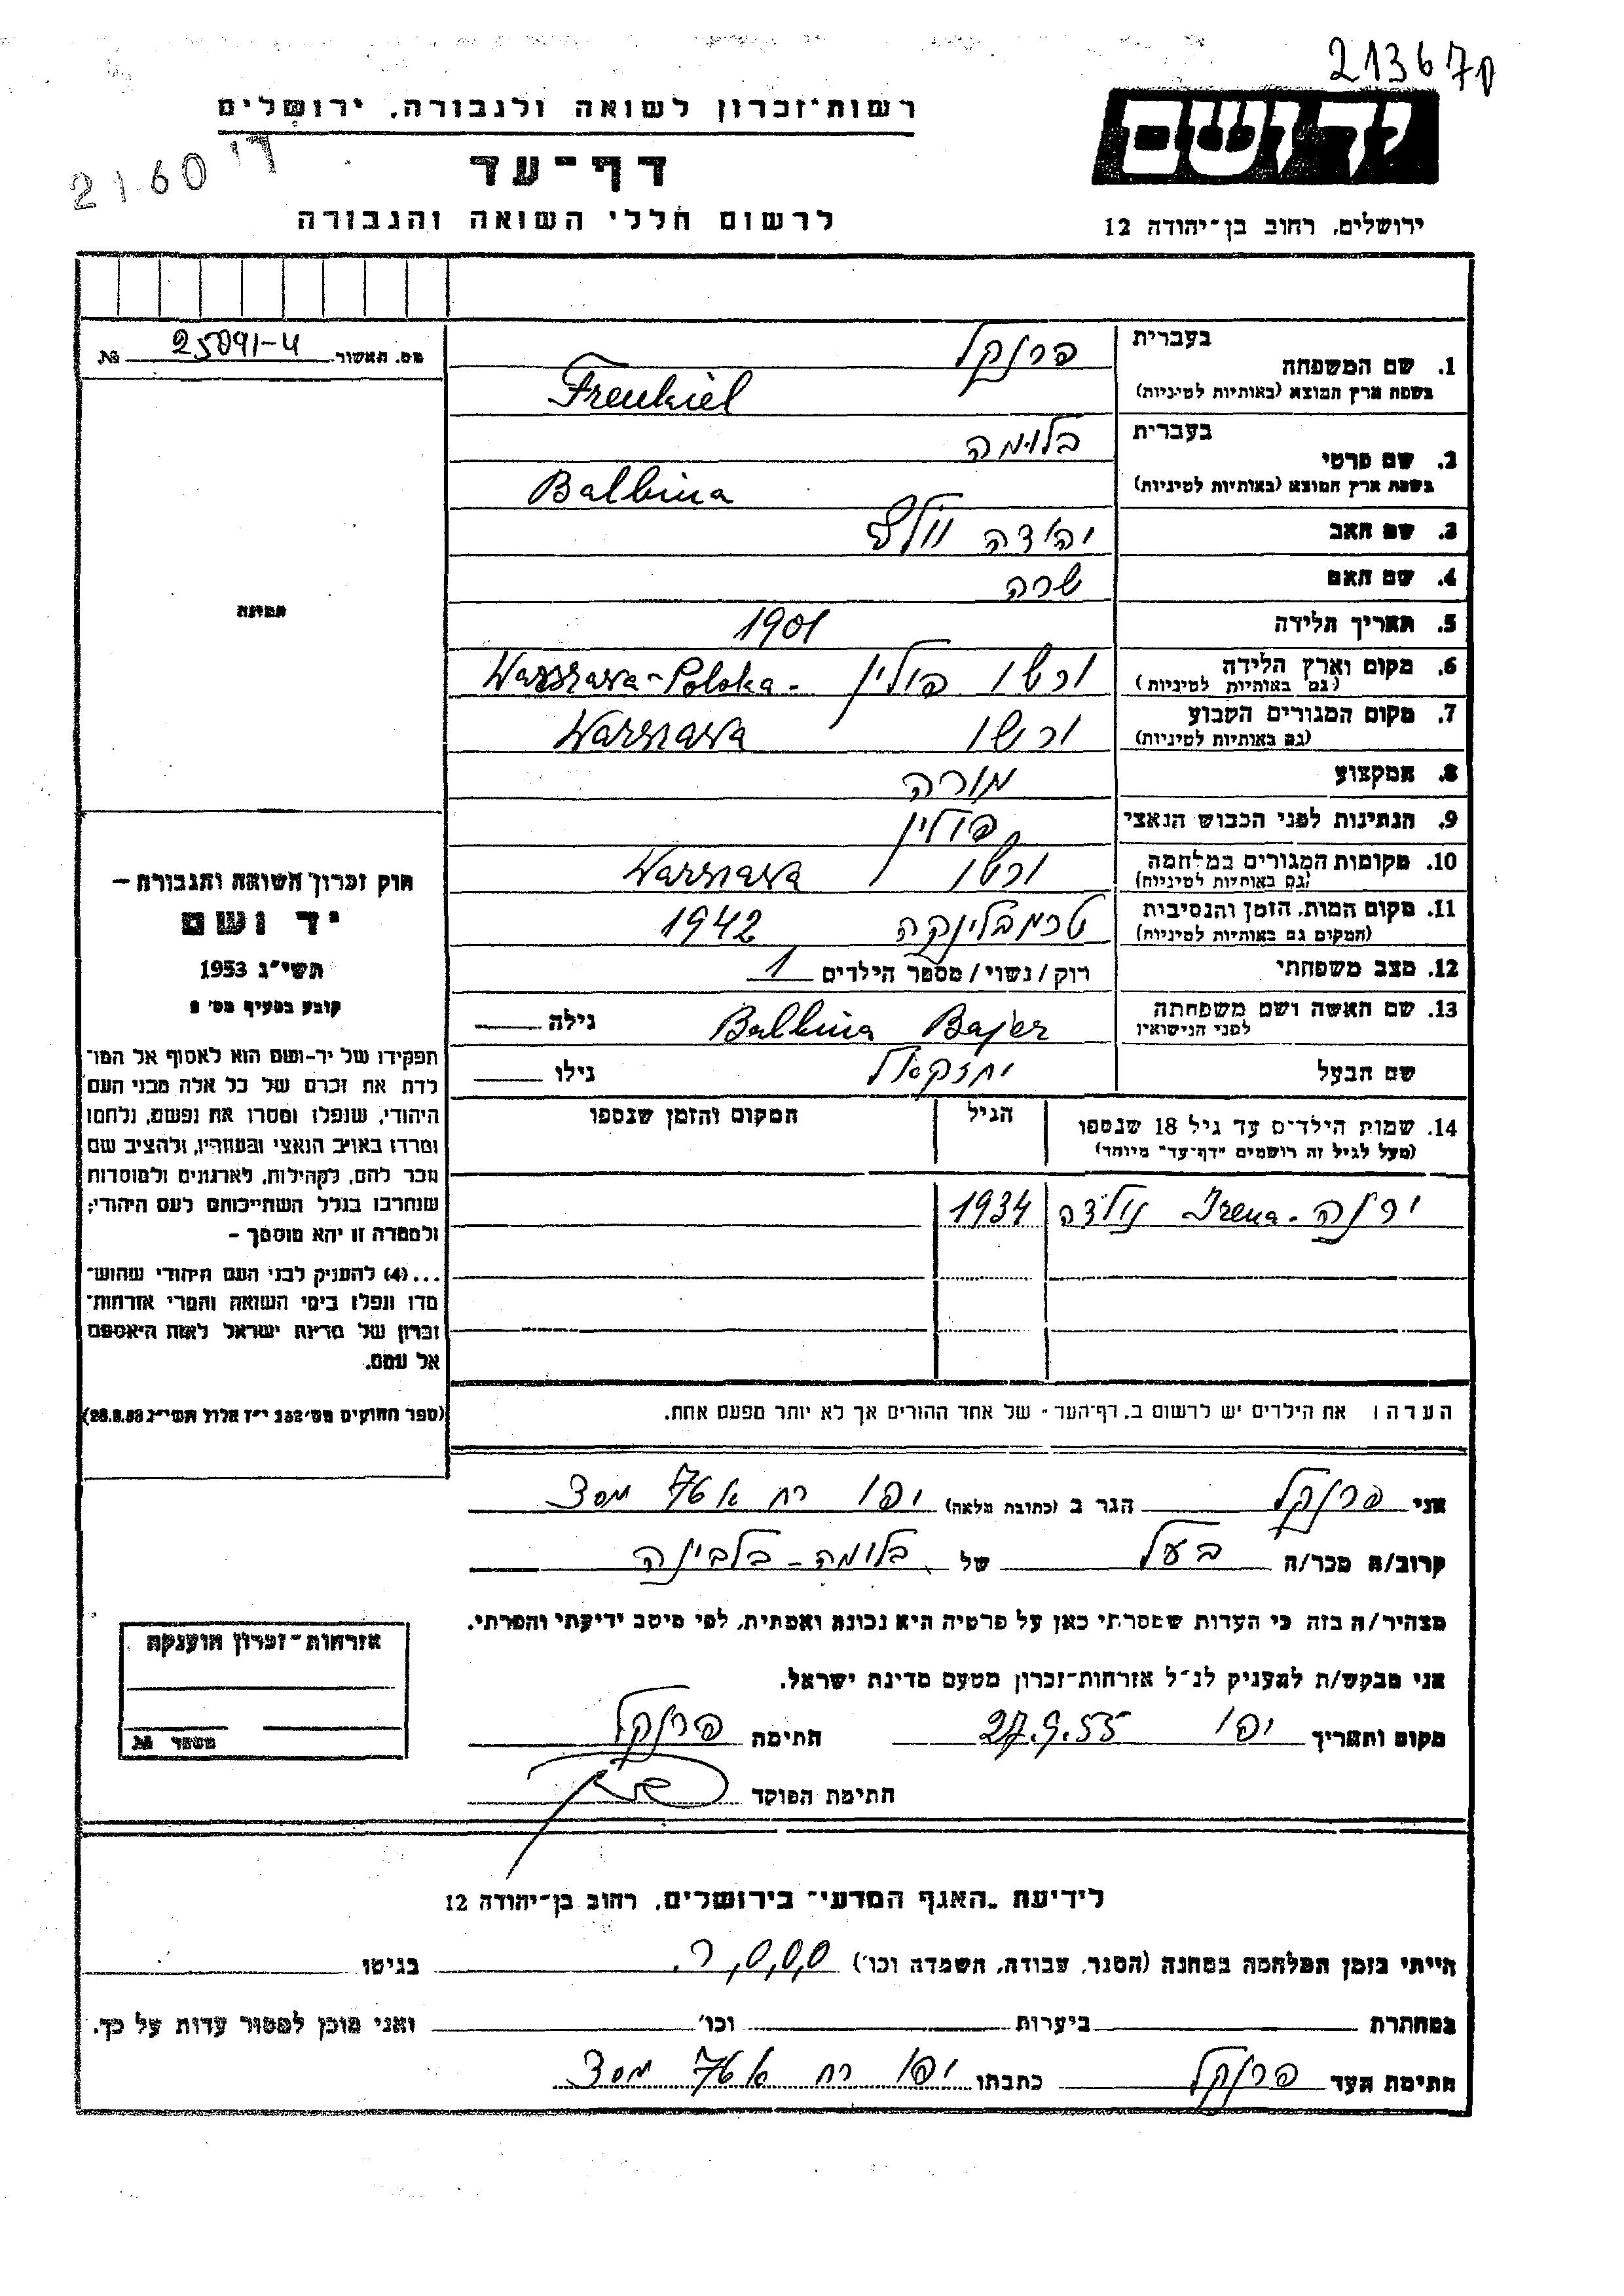 213670
יד ושם
רשות־זכרון לשואה ולגבורה, ירושלים
2160
דף־עד
לרשום חללי השואה והגבורה
ירושלים, רחוב בן־יהודה 12
מס. האשור 25091-4 №
תמונה
חוק זכרון השואה והגבורה —
יד ושם
תשי״ג 1953
קובע בסעיף מס׳ 2
תפקידו של יד-ושם הוא לאסוף אל המו־
לדת את זכרם של כל אלה מבני העם
היהודי, שנפלו ומסרו את נפשם, נלחמו
ומרדו באויב הנאצי ובעוזריו, ולהציב שם
וזכר להם, לקהילות, לארגונים ולמוסדות
שנחרבו בגלל השתייכותם לעם היהודי;
ולמטרה זו יהא מוסמך —
...(4) להעניק לבני העם היהודי שהוש־
מדו ונפלו בימי השואה והמרי אזרחות־
זכרון של מדינת ישראל לאות היאספם
אל עמם.
(ספר החוקים מס׳ 132 י״ז אלול תשי״ג 28.8.53)
1. שם המשפחה בעברית פרנקל
בשפת ארץ המוצא (באותיות לטיניות) Frenkiel
2. שם פרטי בעברית בלומה
בשפת ארץ המוצא (באותיות לטיניות) Balbina
3. שם האב יהודה וולף
4. שם האם שרה
5. תאריך הלידה 1901
6. מקום וארץ הלידה ורשו פולין Warszawa-Polska
(גם באותיות לטיניות)
7. מקום המגורים הקבוע ורשו Warszawa
(גם באותיות לטיניות)
8. המקצוע מורה
9. הנתינות לפני הכבוש הנאצי פולין
10. מקומות המגורים במלחמה ורשו Warszawa
(גם באותיות לטיניות)
11. מקום המות, הזמן והנסיבות טרמבלינקה 1942
(המקום גם באותיות לטיניות)
12. מצב משפחתי רוק/נשוי/מספר הילדים 1
13. שם האשה ושם משפחתה Balbina Bajer גילה
לפני הנישואין
שם הבעל יחזקאל גילו
14. שמות הילדים עד גיל 18 שנספו הגיל המקום והזמן שנספו
(מעל לגיל זה רושמים "דף־עד" מיוחד)
ירנה - Irena נולדה 1934
הערה: את הילדים יש לרשום ב„דף־העד״ של אחד ההורים אך לא יותר מפעם אחת.
אני פרנקל הגר ב (כתובת מלאה) יפו רח 76
קרוב/ה מכר/ה בעל של בלומה - בלבינה
מצהיר/ה בזה כי העדות שמסרתי כאן על פרטיה היא נכונה ואמתית, לפי מיטב ידיעתי והכרתי.
אני מבקש/ת להעניק לנ״ל אזרחות־זכרון מטעם מדינת ישראל.
מקום ותאריך יפו 27.9.55 חתימה פרנקל
חתימת הפוקד
אזרחות־זכרון הוענקה
מספר №
לידיעת „האגף המדעי״ בירושלים, רחוב בן־יהודה 12
הייתי בזמן המלחמה במחנה (הסגר, עבודה, השמדה וכו׳) בגיטו
במחתרת ביערות וכו׳ ואני מוכן למסור עדות על כך.
חתימת העד פרנקל כתבתו יפו רח 76